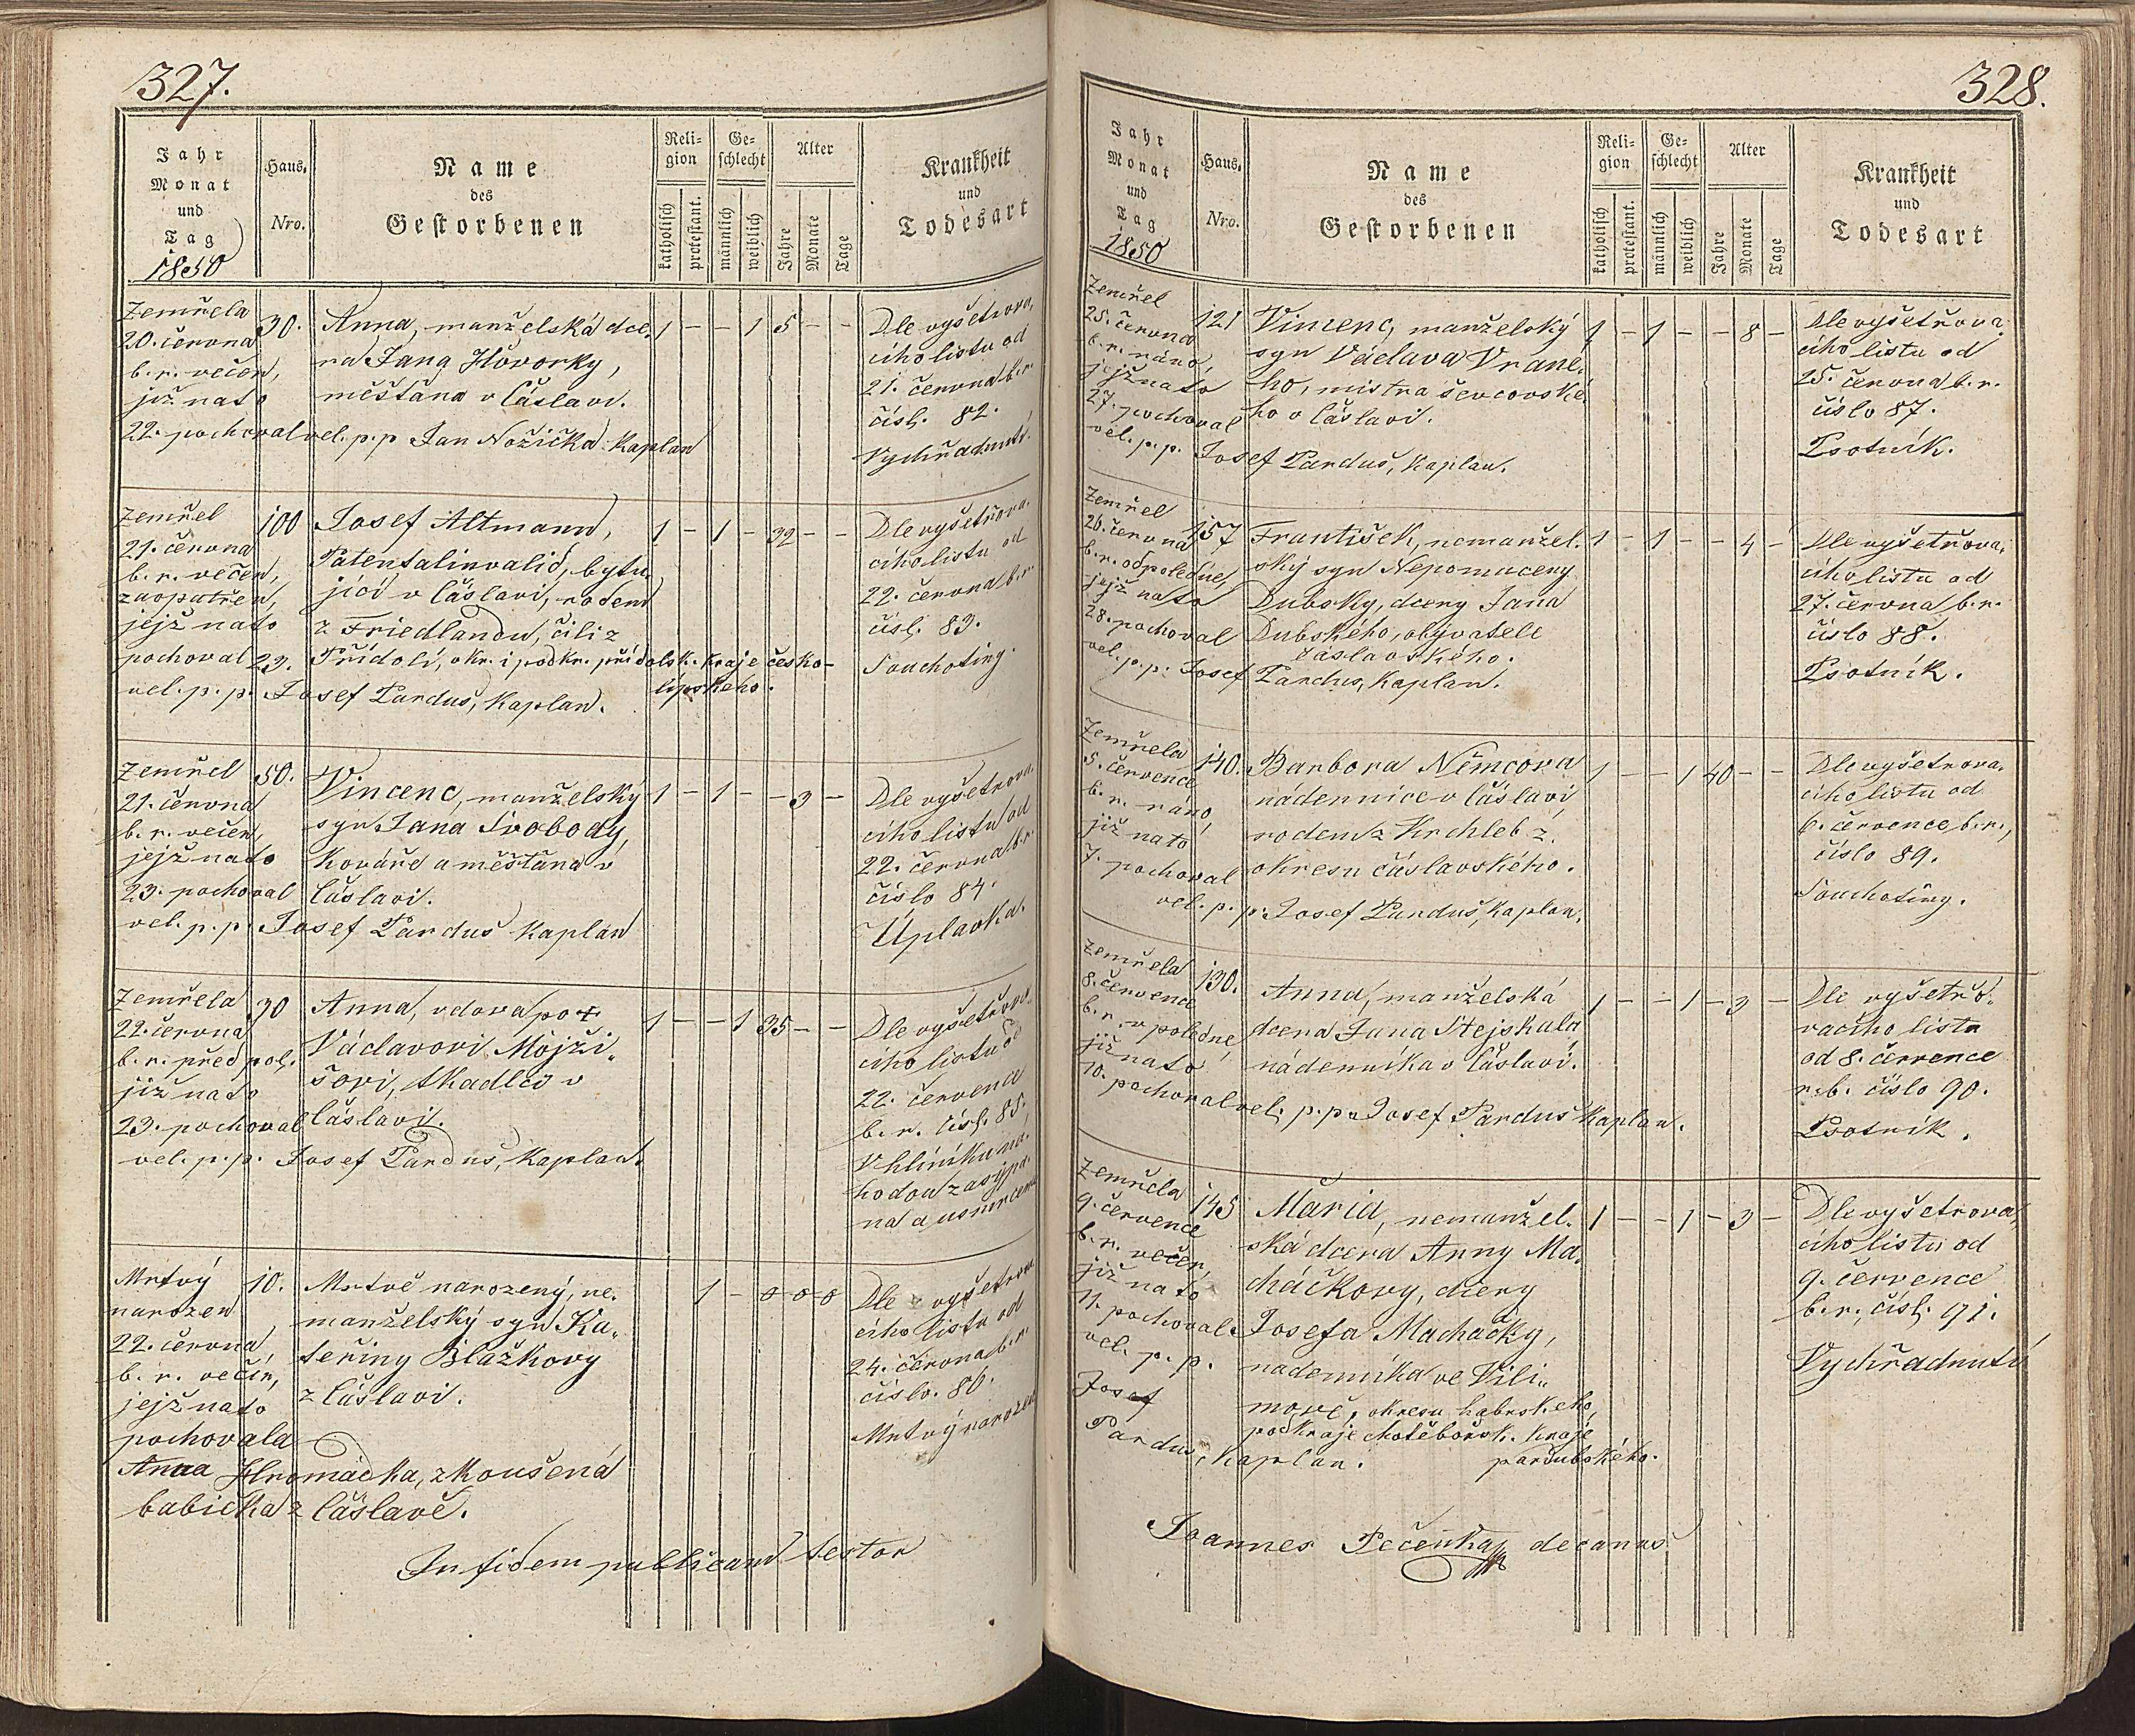 327.
Jahr Monat und Tag
1850
Haus. Nro.
Name des Gestorbenen
Religion
katholisch
protestant.
Geschlecht
männlich
weiblich
Alter
Jahre
Monate
Tage
Krankheit und Todesart
Zemřela
20. června
b. r. večer,
již nato
22. pochoval vel. p. p. Jan Nožička Kaplan
30.
Anna, manželská dce-
ra Jana Hovorky,
měšťana v Čáslavi.
1 - - 1 5 - -
Dle vyšetřova-
cího listu od
21. června b. r.
čísl. 82.
Vychřadnutí.
Zemřel
21. června
b. r. večer,
zaopatřen,
jejž nato
pochoval 23.
vel. p. p. Josef Parduš, Kaplan.
100
Josef Altmann,
Patentalinvalid, bytu-
jící v Čáslavi, rodem
z Friedlandu, čili z
Přídolí, okr. i podkr. přídolsk. kraje česko-
lipského.
1 - 1 - 32 - -
Dle vyšetřova-
cího listu od
22. června b. r.
čísl. 83.
Souchotiny.
Zemřel
21. června
b. r. večer,
jejž nato
23. pochoval
vel. p. p. Josef Parduš Kaplan
50.
Vincenc, manželský
syn Jana Svobody,
Kováře a měšťana v
Čáslavi.
1 - 1 - - 3 -
Dle vyšetřova-
cího listu od
22. června b. r.
číslo 84.
Úplavka.
Zemřela
22. června
b. r. před pol.
již nato
23. pochoval
vel. p. p. Josef Parduš, Kaplan.
30
Anna, vdova po †
Václavovi Mojži-
šovi, tkadlci v
Čáslavi.
1 - - 1 35 - -
Dle vyšetřova-
cího listu od
22. července
b. r. čísl. 85.
V hliníku ná-
hodou zasypa-
na a usmrcena
Mrtvý
narozen
22. června,
b. r. večír,
jejž nato
pochovala
Anna Hromádka, zkoušená
babička z Čáslavě.
10.
Mrtvě narozený, ne-
manželský syn Ka-
teřiny Blažkovy
z Čáslavi.
1 - 0 - 0 - 0
Dle vyšetřova-
cího listu od
24. června b. r.
číslo. 86.
Mrtvý narozen
In fidem publicam testor
328.
Jahr Monat und Tag
1850
Haus. Nro.
Name des Gestorbenen
Religion
katholisch
protestant.
Geschlecht
männlich
weiblich
Alter
Jahre
Monate
Tage
Krankheit und Todesart
Zemřel
25. června
b. r. ráno,
jejž nato
27. pochoval
vel. p. p. Josef Parduš, Kaplan.
121
Vincenc, manželský
syn Václava Vrané-
ho, mistra ševcovské-
ho v Čáslavi.
1 - 1 - - 8 -
Dle vyšetřova-
cího listu od
25. června b. r.
číslo 87.
Psotník.
Zemřel
26. června
b. r. odpoledne,
jejž nato
28. pochoval
vel. p. p. Josef Parduš, Kaplan.
157
František, nemanžel-
ský syn Nepomuceny
Dubsky, dcery Jana
Dubského, obyvatele
čáslavského.
1 - 1 - - 4 -
Dle vyšetřova-
cího listu od
27. června b. r.
číslo 88.
Psotník.
Zemřela
5. července
b. r. ráno,
již nato
7. pochoval
vel. p. p. Josef Parduš, Kaplan.
140.
Barbora Němcova
nádennice v Čáslavi
rodem z Krchleb z.
okresu čáslavského.
1 - - 1 40 - -
Dle vyšetřova-
cího listu od
6. července b. r.,
číslo 89.
Souchotiny.
Zemřela
8. července
b. r. v poledne,
již nato
10. pochoval vel. p. p. Josef Parduš Kaplan.
130.
Anna, manželská
dcera Jana Stejskala
nádenníka v Čáslavi.
1 - - 1 - 3 -
Dle vyšetřo-
vacího listu
od 8. července
r. b. číslo 90.
Psotník.
Zemřela
9. července
b. r. večer,
již nato
11. pochoval
vel. p. p.
Josef
Parduš, Kaplan.
145
Maria, nemanžel-
ská dcera Anny Ma-
cháčkovy, dcery
Josefa Macháčky,
nadenníka ve Vili-
mově, okresu habrského,
podkraje chotěbořsk. kraje
pardubského.
1 - - 1 - 3 -
Dle vyšetřova-
cího listu od
9. července
b. r. čísl. 91.
Vychřadnutí
Joannes Pečenka decanus